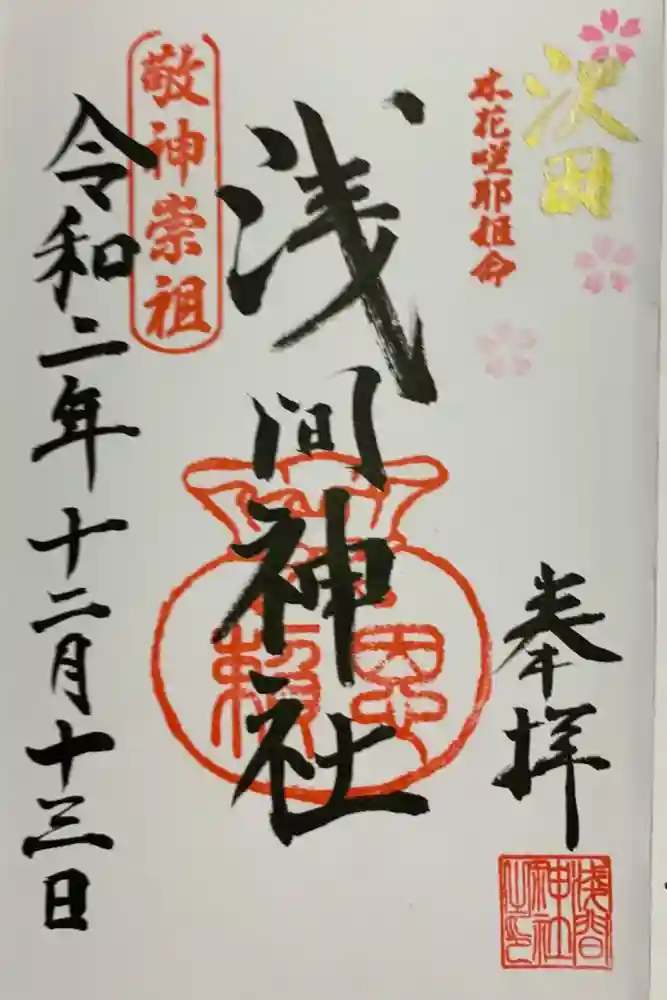 沢田
木花咲耶姫命
奉拝
浅間神社
敬神崇祖
令和二年十二月十三日
浅間
神社
之印